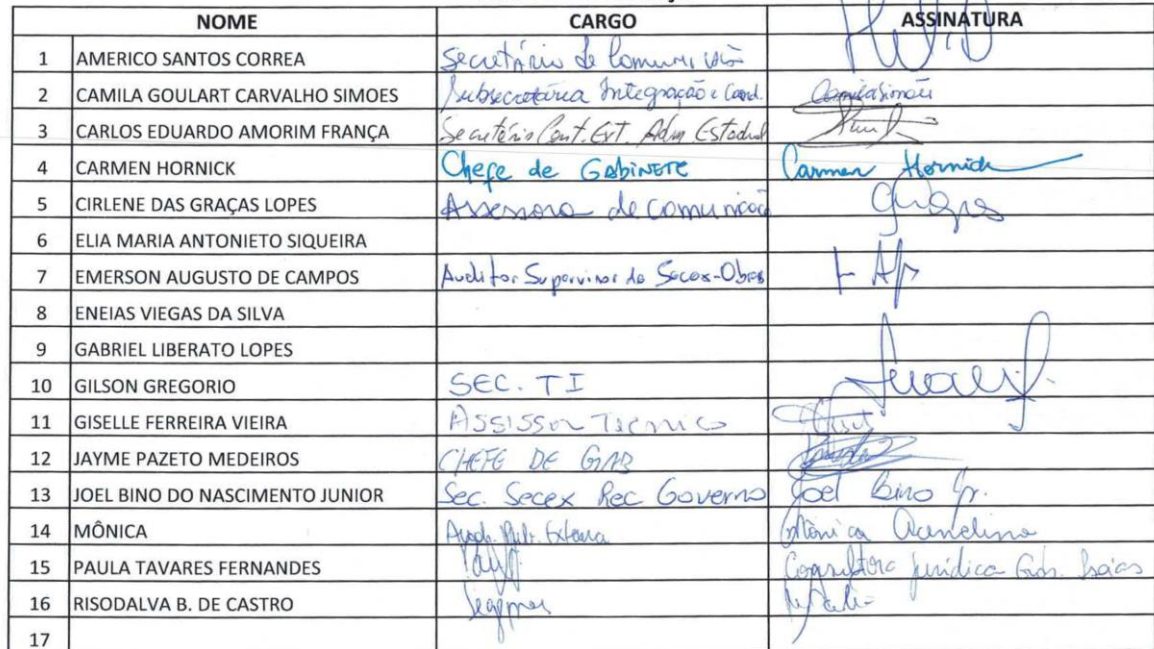 NOME CARGO ASSINATURA
1 AMERICO SANTOS CORREA Secretário de
2 CAMILA GOULART CARVALHO SIMOES Subsecretária Integração e Cood. Camila Simões
3 CARLOS EDUARDO AMORIM FRANÇA Secretário Cont. Ext. Adm Estadual
4 CARMEN HORNICK Chefe de GABINETE Carmen Hornick
5 CIRLENE DAS GRAÇAS LOPES Assessora de comunicação
6 ELIA MARIA ANTONIETO SIQUEIRA
7 EMERSON AUGUSTO DE CAMPOS Auditor Supervisor da Secex-Obras
8 ENEIAS VIEGAS DA SILVA
9 GABRIEL LIBERATO LOPES
10 GILSON GREGORIO SEC. TI
11 GISELLE FERREIRA VIEIRA ASSISSOR TECNICO
12 JAYME PAZETO MEDEIROS CHEFE DE GAB
13 JOEL BINO DO NASCIMENTO JUNIOR Sec. Secex Rec Governo Joel Bino Jr.
14 MÔNICA Mônica
15 PAULA TAVARES FERNANDES Consultora jurídica Gab. Isaias
16 RISODALVA B. DE CASTRO
17